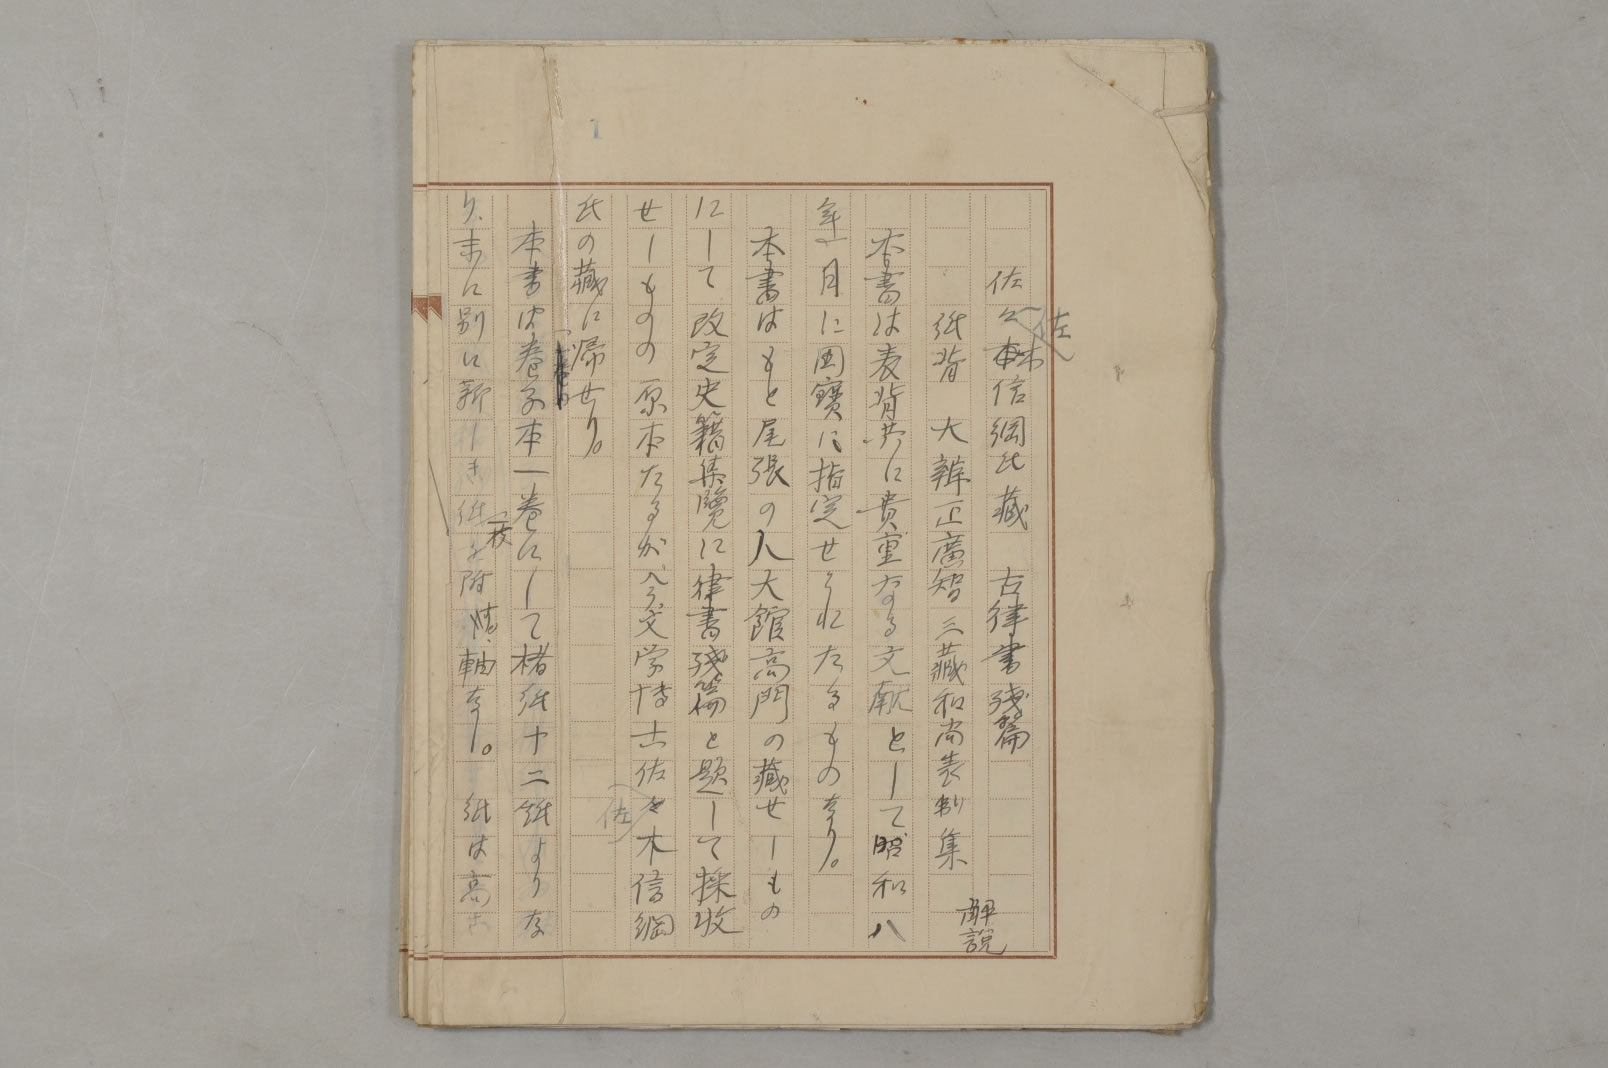 1
佐々木信綱氏藏 古律書残篇
佐
紙背 大辨正廣智三藏和尚表制集
解説
本書は表背共に貴重なる文献として昭和八
年一月に國寳に指定せられたるものなり。
本書はもと尾張の人大館高門の藏せしもの
にして改定史籍集覧に律書残篇と題して採收
せしものの原本たるが、今文学博士佐々木信綱
佐
氏の藏に帰せり。
本書は巻子本一巻にして楮紙十二紙よりな
り、末に別に新しき紙一枚を附
軸なし。紙は高さ